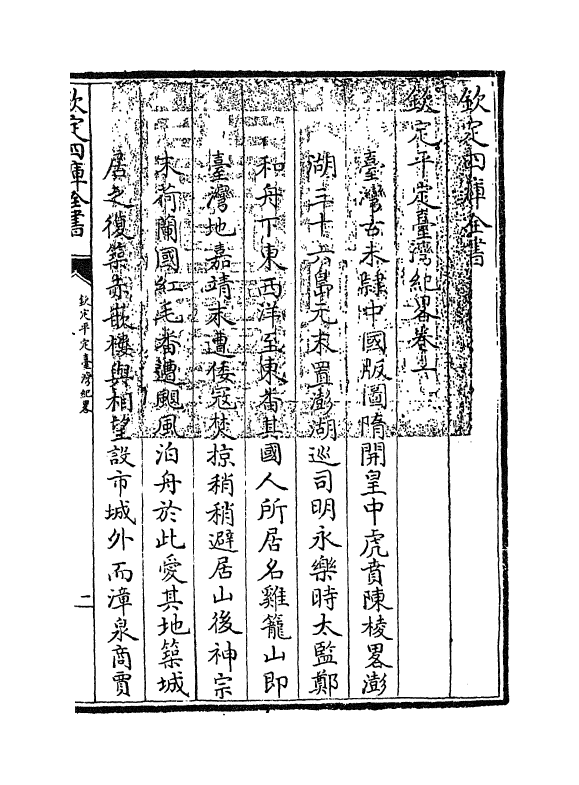 欽定四庫全書
欽定平定臺灣紀畧卷一
臺灣古未隸中國版圖隋開皇中虎賁陳棱畧澎
湖三十六島元末置澎湖巡司明永樂時太監鄭
和舟下東西洋至東番其國人所居名雞籠山即
臺灣地嘉靖末遭倭寇焚掠稍稍避居山後神宗
末荷蘭國紅毛番遭颶風泊舟於此愛其地築城
居之復築赤嵌樓與相望設市城外而漳泉商賈
欽定四庫全書
欽定平定臺灣紀畧